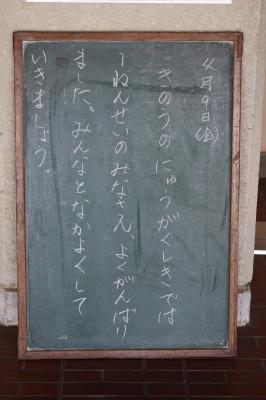 4月9日(金)
きのうの にゅうがくしきでは
1ねんせいのみなさん、よくがんばり
ました。みんなとなかよくして
いきましょう。